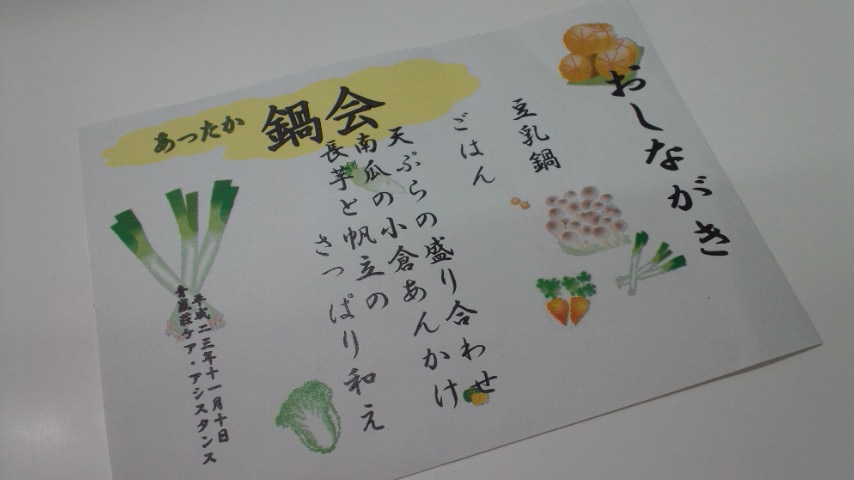 おしながき
豆乳鍋
ごはん
天ぷらの盛り合わせ
南瓜の小倉あんかけ
長芋と帆立の
さっぱり和え
あったか 鍋会
平成二三年十一月十日
青葉荘ケア・アシスタンス